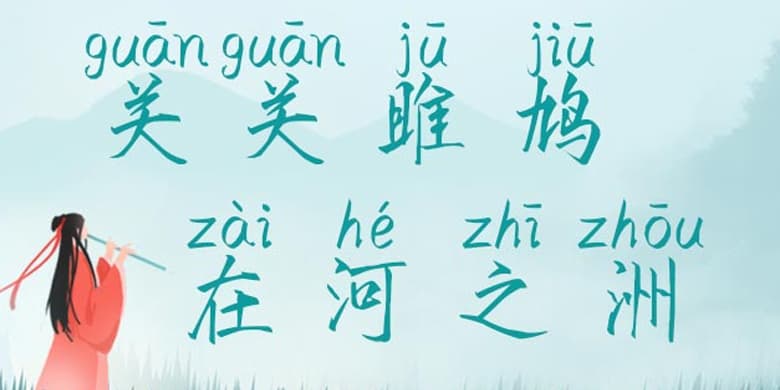 guān guān jū jiū
关关雎鸠
zài hé zhī zhōu
在河之洲